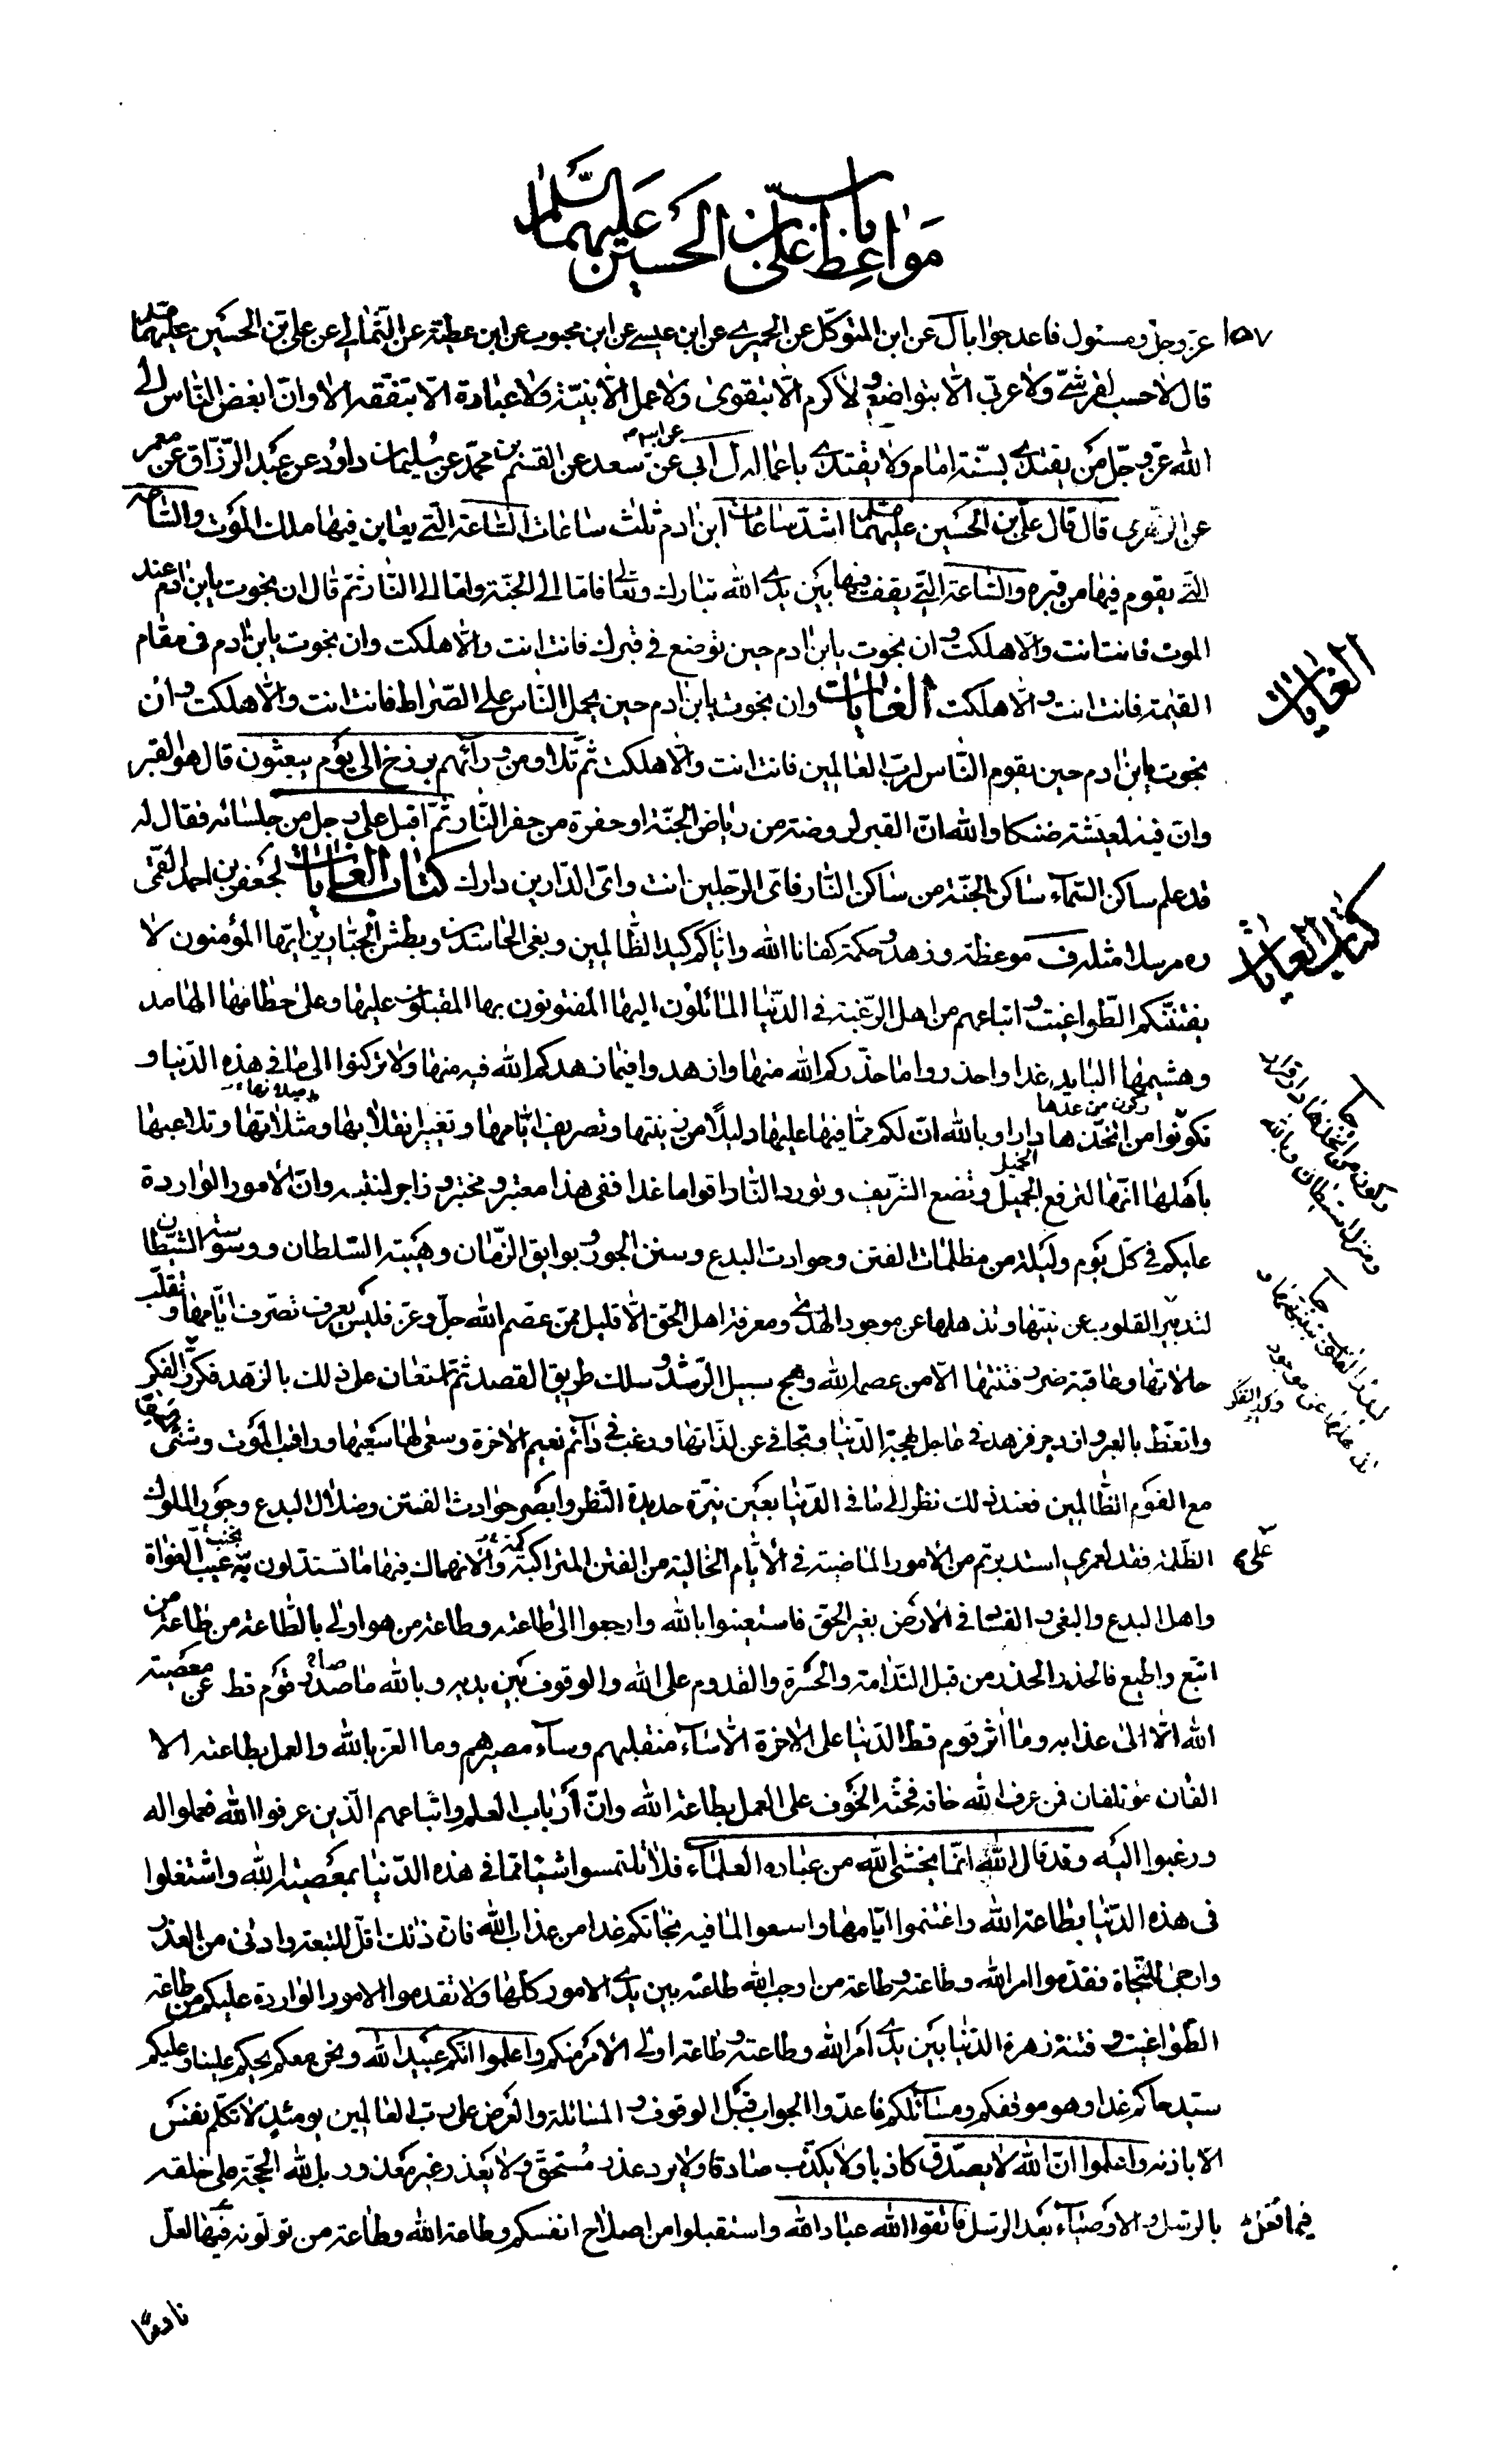 باب
مواعظ علي بن الحسين عليهما السلام
١٥٧ عز وجل ومسئول فاعد جوابا ل عن ابن المتوكل عن الحميري عن ابن عيسى عن ابن محبوب عن ابن عطية عن الثمالي عن علي بن الحسين عليهما
قال لا حسب لقرشي ولا عربي الا بتواضع ولا كرم الا بتقوى ولا عمل الا بنية ولا عبادة الا بتفقه الا وان ابغض الناس الى
الله عز وجل من يقتدي بسنة امام ولا يقتدي باعماله ل ابي عن سعد عن القسم بن محمد عن سليمان بن داود عن عبد الرزاق عن معمر
عن الزهري قال قال علي بن الحسين عليهما اشد ساعات ابن ادم ثلث ساعات الساعة التي يعاين فيها ملك الموت والساعة
التي يقوم فيها من قبره والساعة التي يقف فيها بين يدي الله تبارك وتعالى فاما الى الجنة واما الى النار ثم قال ان نجوت يا بن ادم عند
الموت فانت انت والا هلكت وان نجوت يا بن ادم حين توضع في قبرك فانت انت والا هلكت وان نجوت يا بن ادم في مقام
القيمة فانت انت والا هلكت الغايات وان نجوت يا بن ادم حين يحمل الناس على الصراط فانت انت والا هلكت وان
الغايات
نجوت يا بن ادم حين يقوم الناس لرب العالمين فانت انت والا هلكت ثم تلا ومن ورائهم برزخ الى يوم يبعثون قال هو القبر
وان فيه لمعيشة ضنكا والله ان القبر لروضة من رياض الجنة او حفرة من حفر النار ثم اقبل على رجل من جلسائه فقال له
قد علم ساكن السماء ساكن الجنة من ساكن النار فاي الرجلين انت واي الدارين دارك كتاب الغايات لجعفر بن احمد القمي
كتاب الغايات
ره مرسلا مثله ف موعظة وزهد وحكمة كفانا الله واياكم كيد الظالمين وبغي الحاسدين وبطش الجبارين ايها المؤمنون لا
يفتننكم الطواغيت واتباعهم من اهل الرغبة في الدنيا المائلون اليها المفتونون بها المقبلون عليها وعلى حطامها الهامد
وهشيمها البايد غدا واحذروا ما حذركم الله منها وازهدوا فيما زهدكم الله فيه منها ولا تركنوا الى ما في هذه الدنيا و
ركون من عدها
تكونوا من اتخذها دارا وبالله ان لكم مما فيها عليها دليلا من زينتها وتصريف ايامها وتغير انقلابها ومثلاتها وتلاعبها
الخميل
باهلها انها لترفع الجميل وتضع الشريف وتورد النار اقواما غدا ففي هذا معتبر ومختبر وزاجر لمنتبه وان الامور الواردة
عليكم في كل يوم وليلة من مظلمات الفتن وحوادث البدع وسنن الجور وبوائق الزمان وهيبة السلطان ووسوسة الشيطان
لتدبير القلوب عن نيتها وتذهلها عن موجود الهدى ومعرفة اهل الحق الا قليل ممن عصم الله جل وعز فليس يعرف تصرف ايامها وتقلب
حالاتها وعاقبة ضرر فتنتها الا من عصم الله ونهج سبيل الرشد وسلك طريق القصد ثم استعان على ذلك بالزهد فكرر الفكر
واتعظ بالعبر وازدجر فزهد في عاجل بهجة الدنيا وتجافى عن لذاتها ورغب في دائم نعيم الاخرة وسعى لها سعيها وراقب الموت وشنئ الحيوة
مع القوم الظالمين فعند ذلك نظر الى ما في الدنيا بعين نيرة حديدة النظر وابصر حوادث الفتن وضلال البدع وجور الملوك
الظلمة فقد لعمري استدبرتم من الامور الماضية في الايام الخالية من الفتن المتراكمة والانهماك فيها ما تستدلون به على تجنب الغواة
واهل البدع والبغي والفساد في الارض بغير الحق فاستعينوا بالله وارجعوا الى طاعته وطاعة من هو اولى بالطاعة من طاعة من
اتبع واطيع فالحذر الحذر من قبل الندامة والحسرة والقدوم على الله والوقوف بين يديه وبالله ما صدر قوم قط عن معصية
الله الا الى عذابه وما اثر قوم قط الدنيا على الاخرة الا ساء منقلبهم وساء مصيرهم وما العز بالله والعمل بطاعته الا
الفان مؤتلفان فمن عرف الله خافه فحثه الخوف على العمل بطاعة الله وان ارباب العلم واتباعهم الذين عرفوا الله فعملوا له
ورغبوا اليه وقد قال الله انما يخشى الله من عباده العلماء فلا تلتمسوا شيئا مما في هذه الدنيا بمعصية الله واشتغلوا
في هذه الدنيا بطاعة الله واغتنموا ايامها واسعوا لما فيه نجاتكم غدا من عذاب الله فان ذلك اقل للتبعة وادنى من العذر
وارجى للنجاة فقدموا امر الله وطاعته وطاعة من اوجب الله طاعته بين يدي الامور كلها ولا تقدموا الامور الواردة عليكم من طاعة
الطواغيت وفتنة زهرة الدنيا بين يدي امر الله وطاعته وطاعة اولى الامر منكم واعلموا انكم عبيد الله ونحن معكم يحكم علينا وعليكم
سيد حاكم غدا وهو موقفكم ومسائلكم فاعدوا الجواب قبل الوقوف والمسائلة والعرض على رب العالمين يومئذ لا تكلم نفس
الا باذنه واعلموا ان الله لا يصدق كاذبا ولا يكذب صادقا ولا يرد عذر مستحق ولا يعذر غير معذور بل لله الحجة على خلقه
بالرسل والاوصياء بعد الرسل فاتقوا الله عباد الله واستقبلوا من اصلاح انفسكم وطاعة الله وطاعة من تولونه فيها لعل
نادما